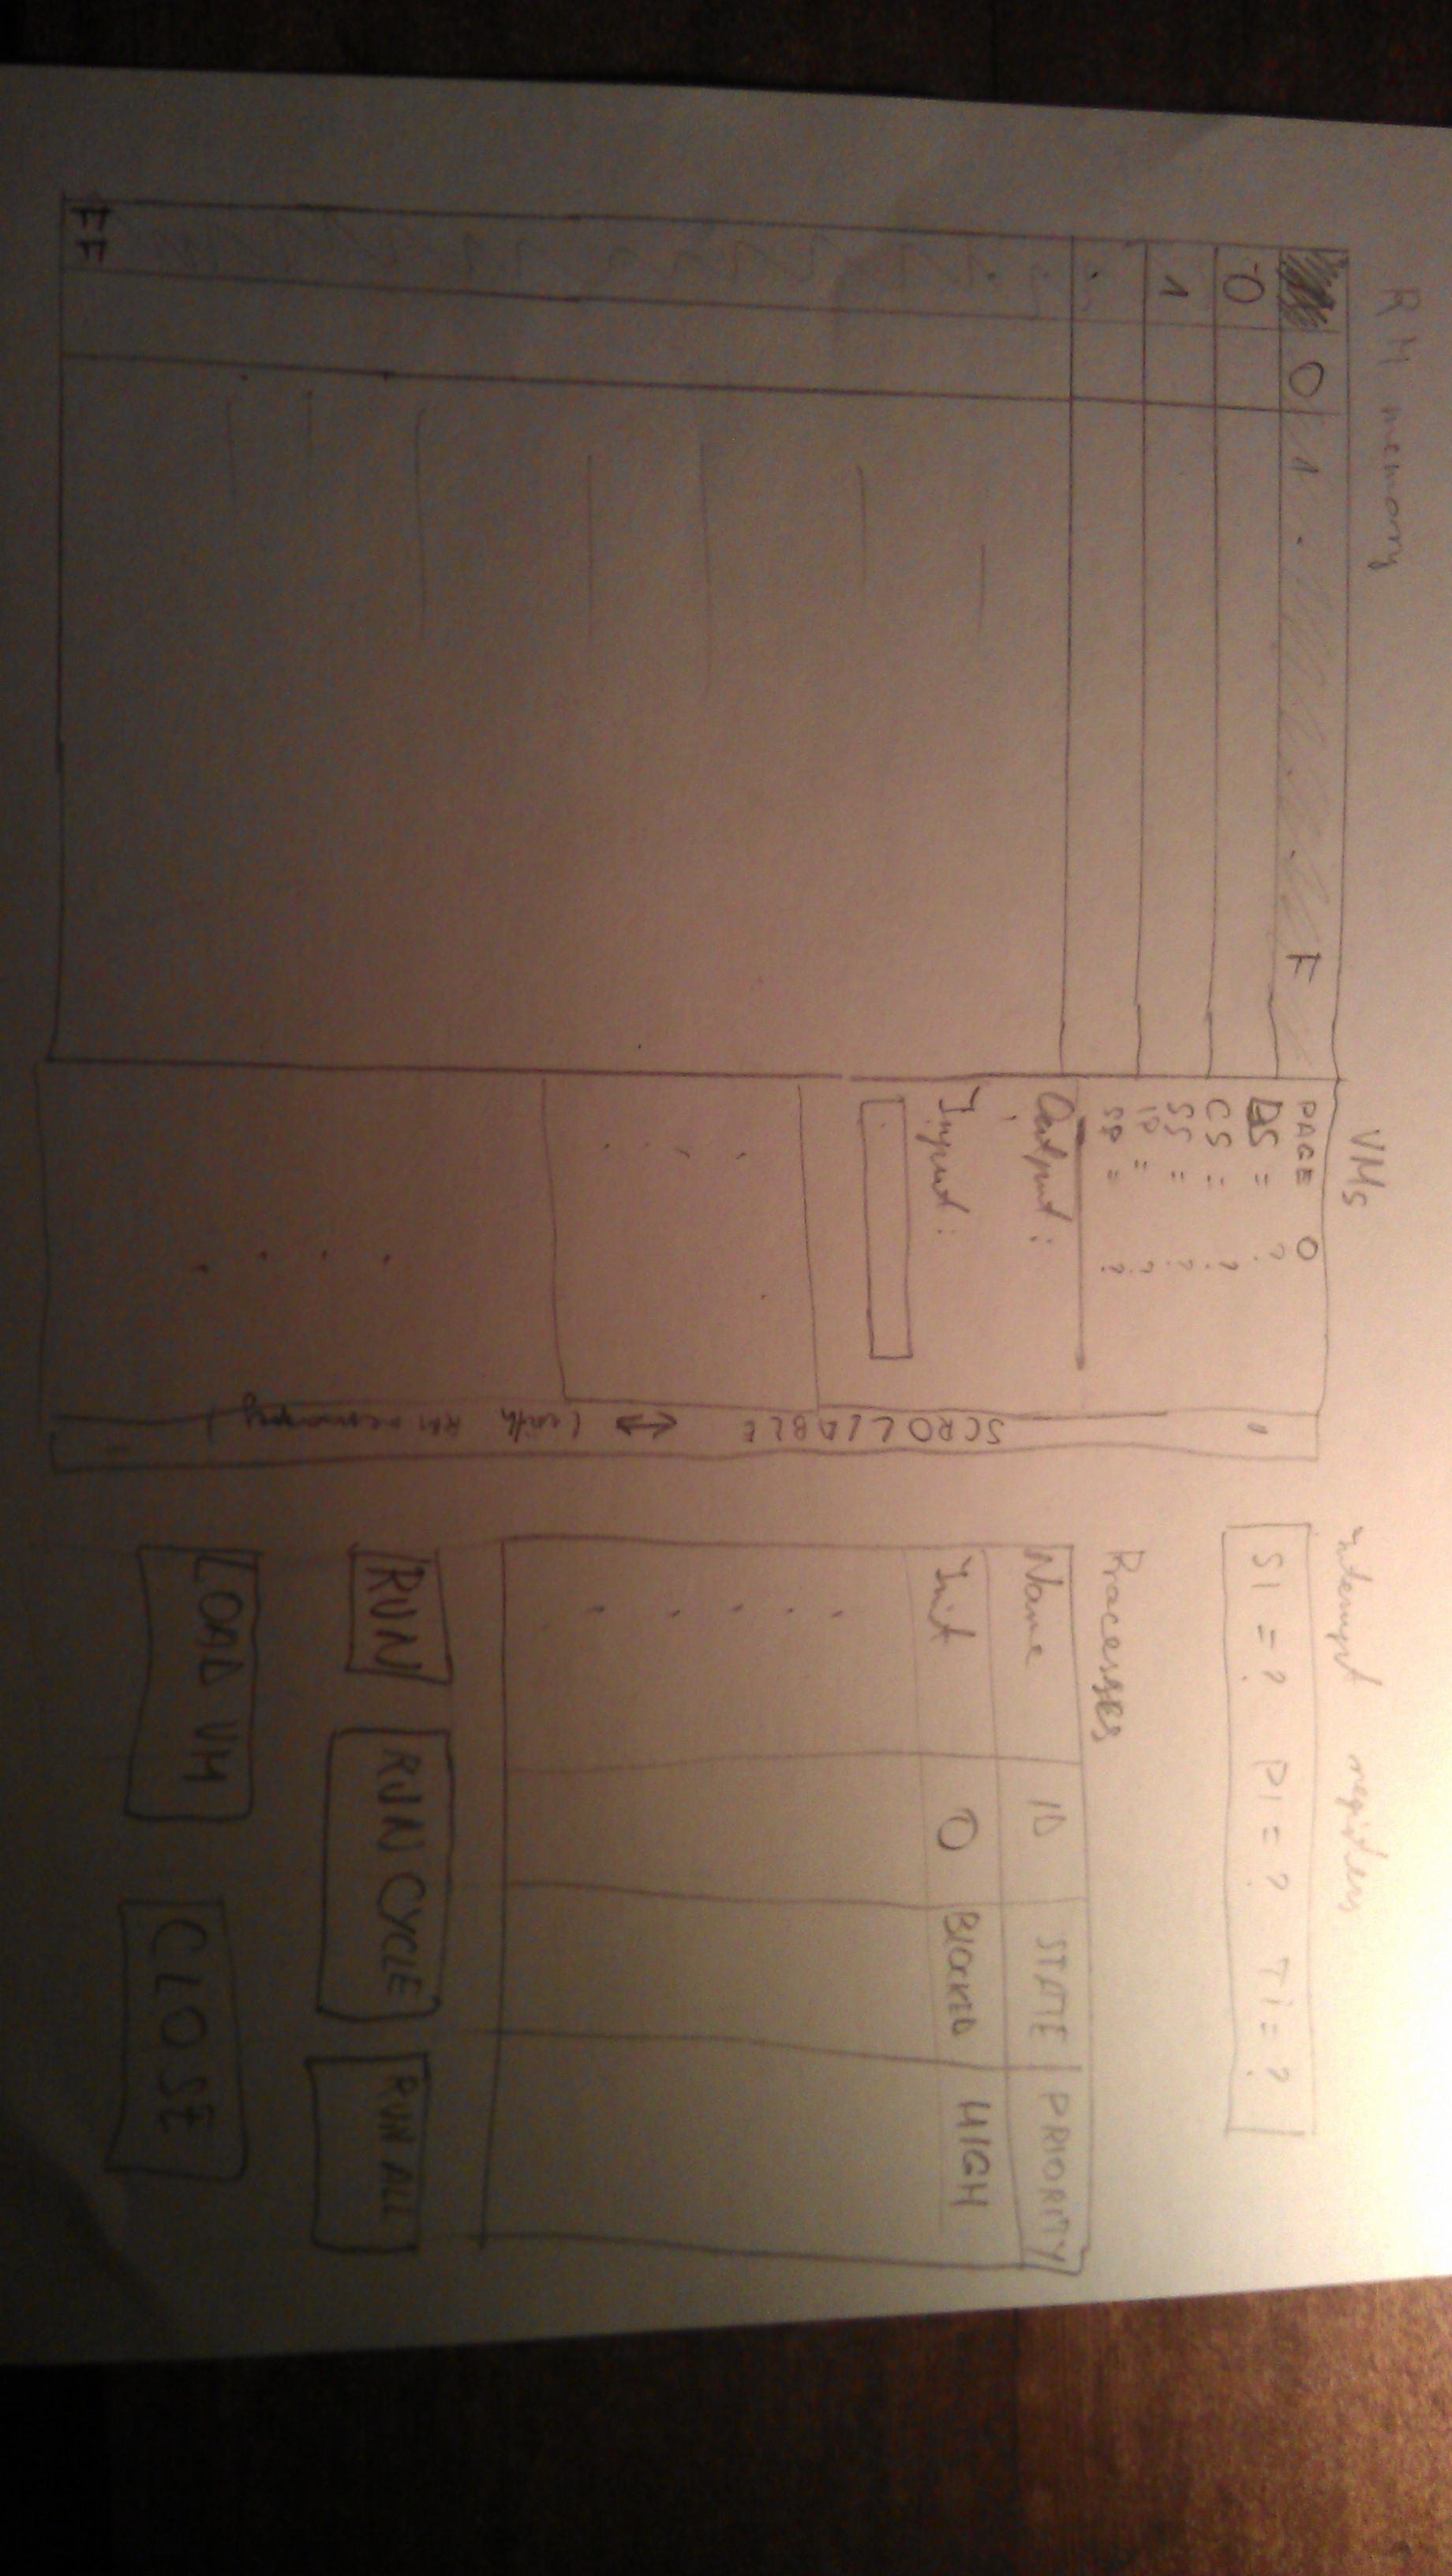 RM memory
0 1 . F
0
1
.
FF
VMs
PAGE 0
DS = ?
CS = ?
SS = ?
IP = ?
SP = ?
Output:
Input:
SCROLLABLE ↔ (with RM memory)
Interrupt registers
SI = ? PI = ? Ti = ?
Processes
Name ID STATE PRIORITY
Init 0 Blocked HIGH
RUN RUN CYCLE RUN ALL
LOAD VM CLOSE